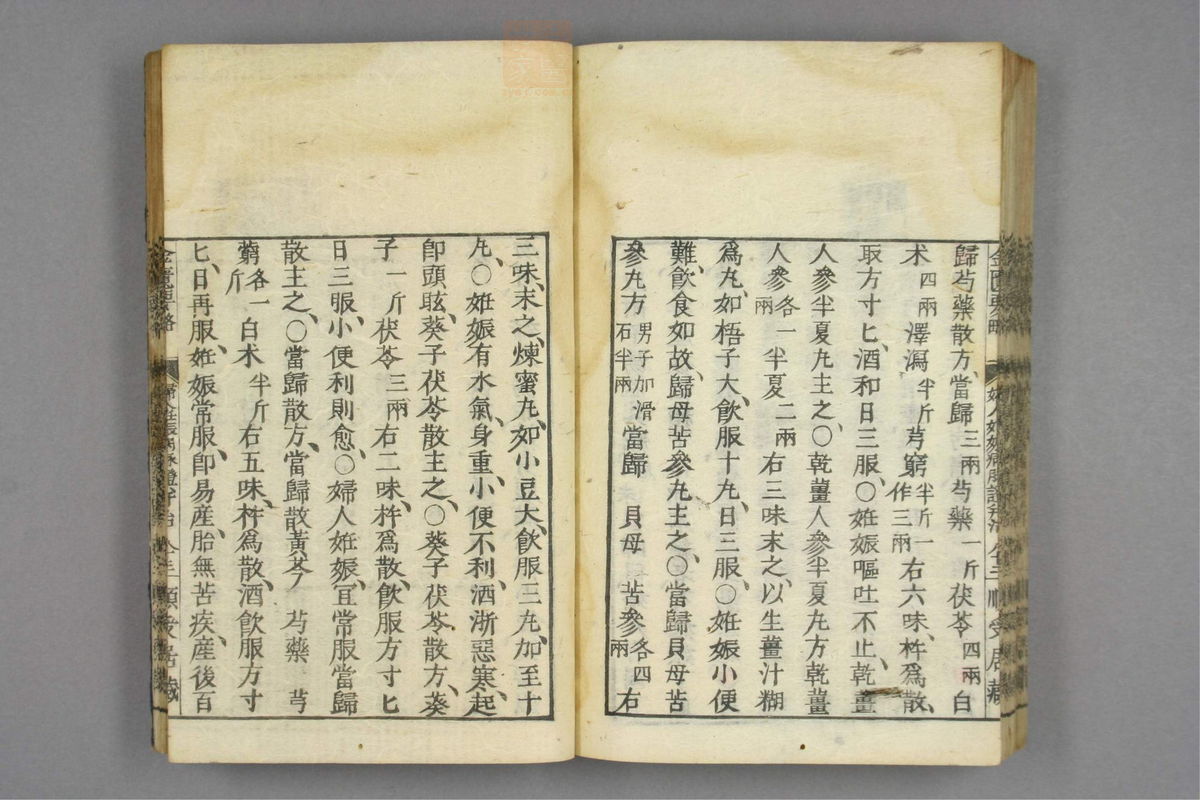 歸芍藥散方、當歸三兩芍藥一斤茯苓四兩白
术四兩澤瀉半斤芎藭半斤一作三兩右六味、杵爲散、
取方寸匕、酒和日三服、〇妊娠嘔吐不止、乾薑
人參半夏丸主之、〇乾薑人參半夏丸方乾薑
人參各一兩半夏二兩右三味末之、以生薑汁糊
爲丸、如梧子大、飲服十丸、日三服、〇妊娠小便
難、飲食如故、歸母苦參丸主之、〇當歸貝母苦
參丸方男子加滑石半兩當歸 貝母 苦參各四兩右
三味、末之、煉蜜丸、如小豆大、飲服三丸、加至十
丸、〇妊娠有水氣、身重、小便不利、洒淅惡寒、起
卽頭眩、葵子茯苓散主之、〇葵子茯苓散方、葵
子一斤茯苓三兩右二味、杵爲散、飲服方寸匕
日三服、小便利則愈、〇婦人妊娠、宜常服當歸
散主之、〇當歸散方、當歸散黃芩 芍藥 芎
藭各一斤白术半斤右五味、杵爲散、酒飲服方寸
匕、日再服、妊娠常服、卽易産、胎無苦疾、産後百